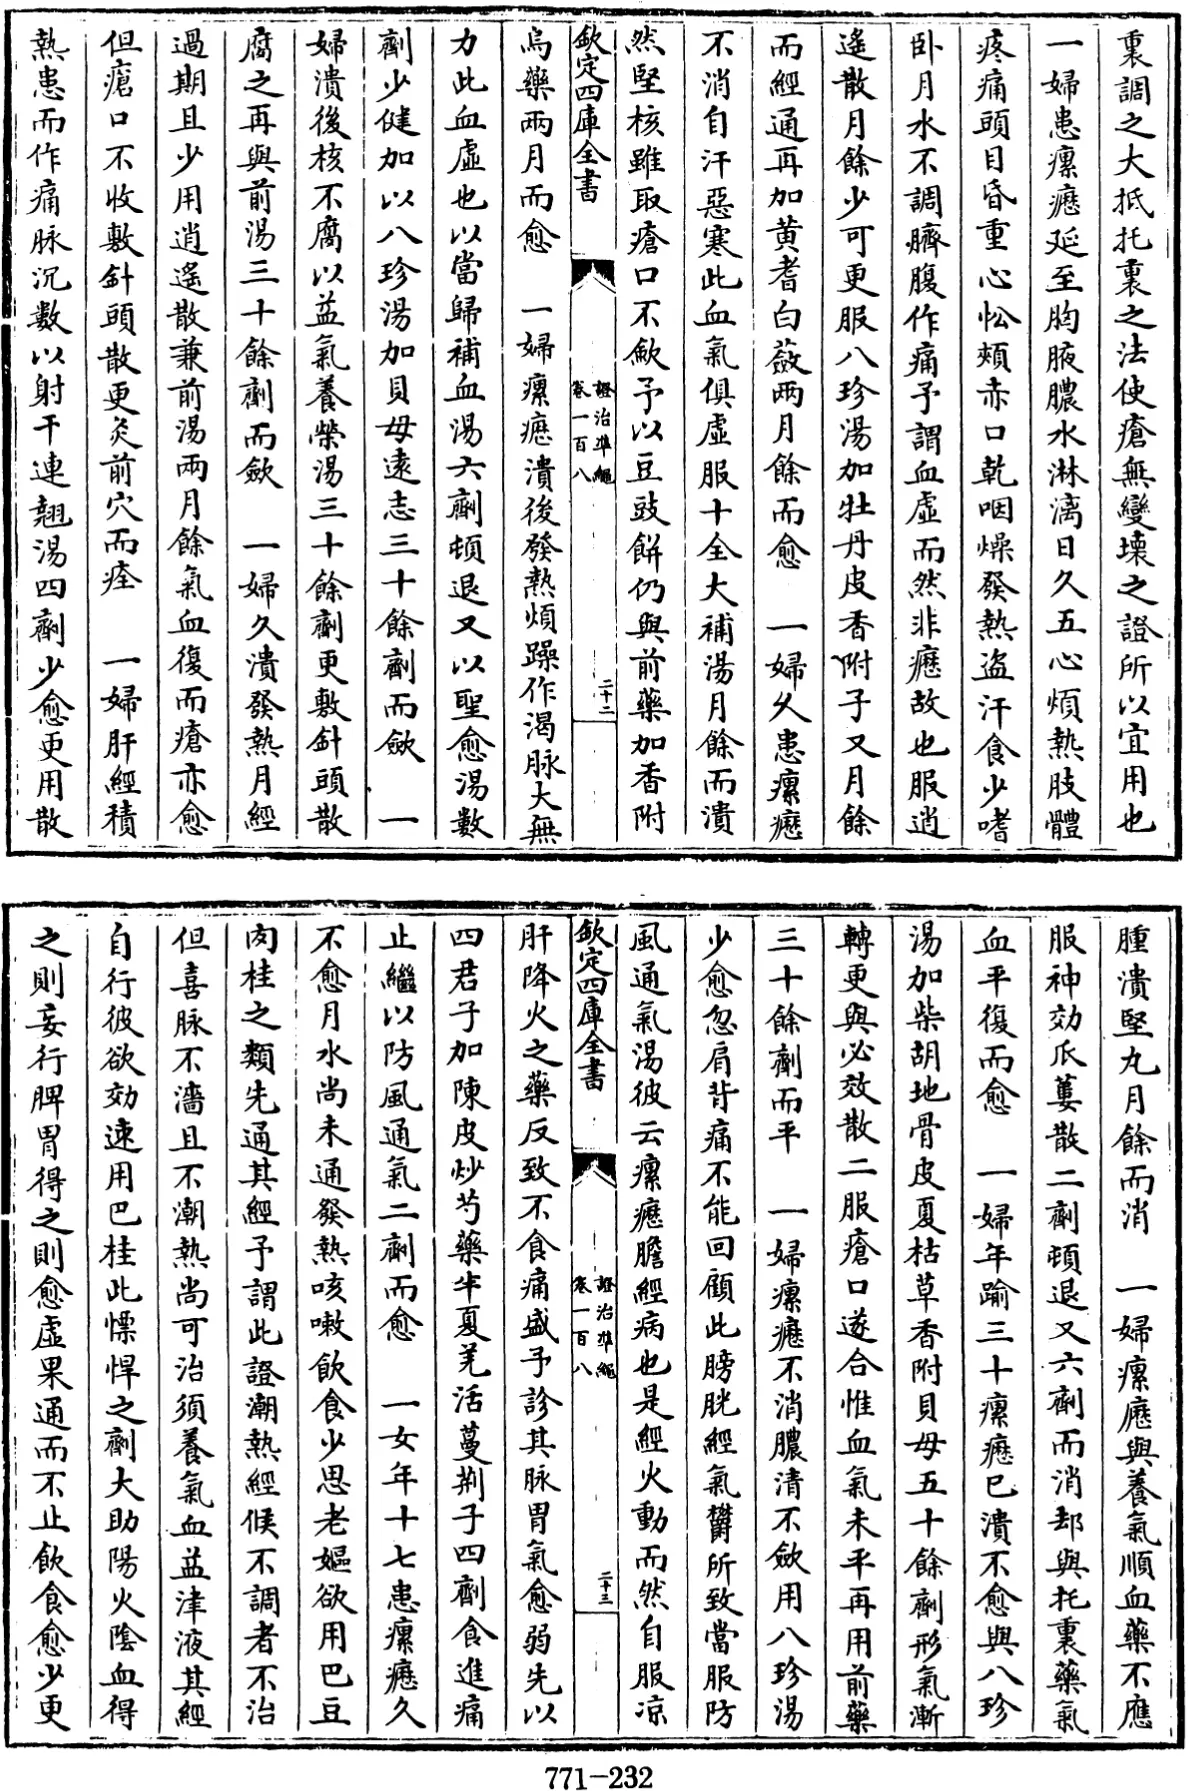 裏調之大抵托裏之法使瘡無變壞之證所以宜用也
一婦患瘰癧延至胸腋膿水淋漓日久五心煩熱肢體
疼痛頭目昏重心忪頰赤口乾咽燥發熱盜汗食少嗜
卧月水不調臍腹作痛予謂血虛而然非癧故也服逍
遙散月餘少可更服八珍湯加牡丹皮香附子又月餘
而經通再加黄耆白蘞兩月餘而愈　一婦久患瘰癧
不消自汗惡寒此血氣俱虛服十全大補湯月餘而潰
然堅核雖取瘡口不歛予以豆豉餅仍與前藥加香附
欽定四庫全書
證治準繩
卷一百八
二十二
烏藥兩月而愈　一婦瘰癧潰後發熱煩躁作渴脉大無
力此血虛也以當歸補血湯六劑頓退又以聖愈湯數
劑少健加以八珍湯加貝母遠志三十餘劑而歛　一
婦潰後核不腐以益氣養榮湯三十餘劑更敷針頭散
腐之再與前湯三十餘劑而歛　一婦久潰發熱月經
過期且少用逍遙散兼前湯兩月餘氣血復而瘡亦愈
但瘡口不收敷針頭散更灸前穴而痊　一婦肝經積
熱患而作痛脉沉數以射干連翹湯四劑少愈更用散
腫潰堅丸月餘而消　一婦瘰癧與養氣順血藥不應
服神効瓜蔞散二劑頓退又六劑而消却與托裏藥氣
血平復而愈　一婦年踰三十瘰癧已潰不愈與八珍
湯加柴胡地骨皮夏枯草香附貝母五十餘劑形氣漸
轉更與必效散二服瘡口遂合惟血氣未平再用前藥
三十餘劑而平　一婦瘰癧不消膿清不歛用八珍湯
少愈忽肩背痛不能回顧此膀胱經氣鬱所致當服防
風通氣湯彼云瘰癧膽經病也是經火動而然自服凉
欽定四庫全書
證治準繩
卷一百八
二十三
肝降火之藥反致不食痛盛予診其脉胃氣愈弱先以
四君子加陳皮炒芍藥半夏羌活蔓荆子四劑食進痛
止繼以防風通氣二劑而愈　一女年十七患瘰癧久
不愈月水尚未通發熱咳嗽飲食少思老嫗欲用巴豆
肉桂之類先通其經予謂此證潮熱經候不調者不治
但喜脉不濇且不潮熱尚可治須養氣血益津液其經
自行彼欲効速用巴桂此慓悍之劑大助陽火陰血得
之則妄行脾胃得之則愈虛果通而不止飲食愈少更
771-232